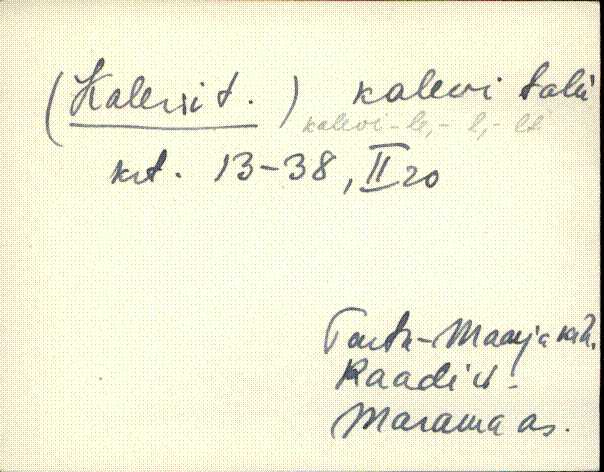 (Kalevi t.) kalevi talu
kalevi-le, -l, -lt
krt. 13-38, II 20
Tartu-Maarja khk.
Raadi v.
Marama as.